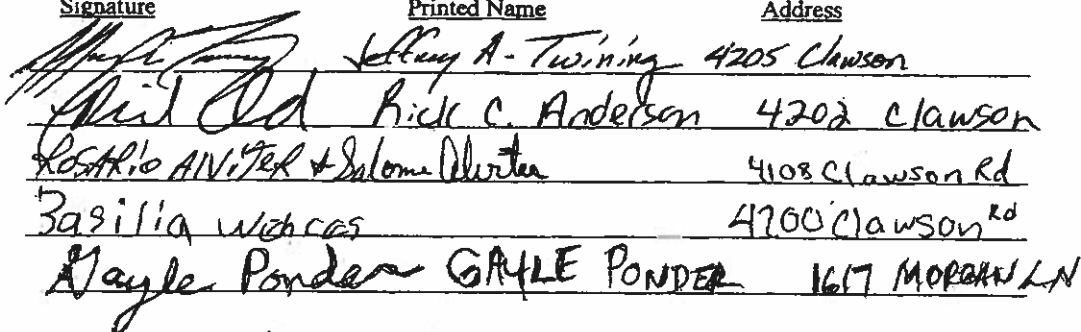 Signature Printed Name Address
Jeffrey A - Twining 4205 Clawson
Rick C. Anderson 4202 Clawson
ROSARIO AlViTER & Salome Alviter 4108 Clawson Rd
Basilia 4200 Clawson Rd
Gayle Ponder GAYLE PONDER 1617 MORGAN LN